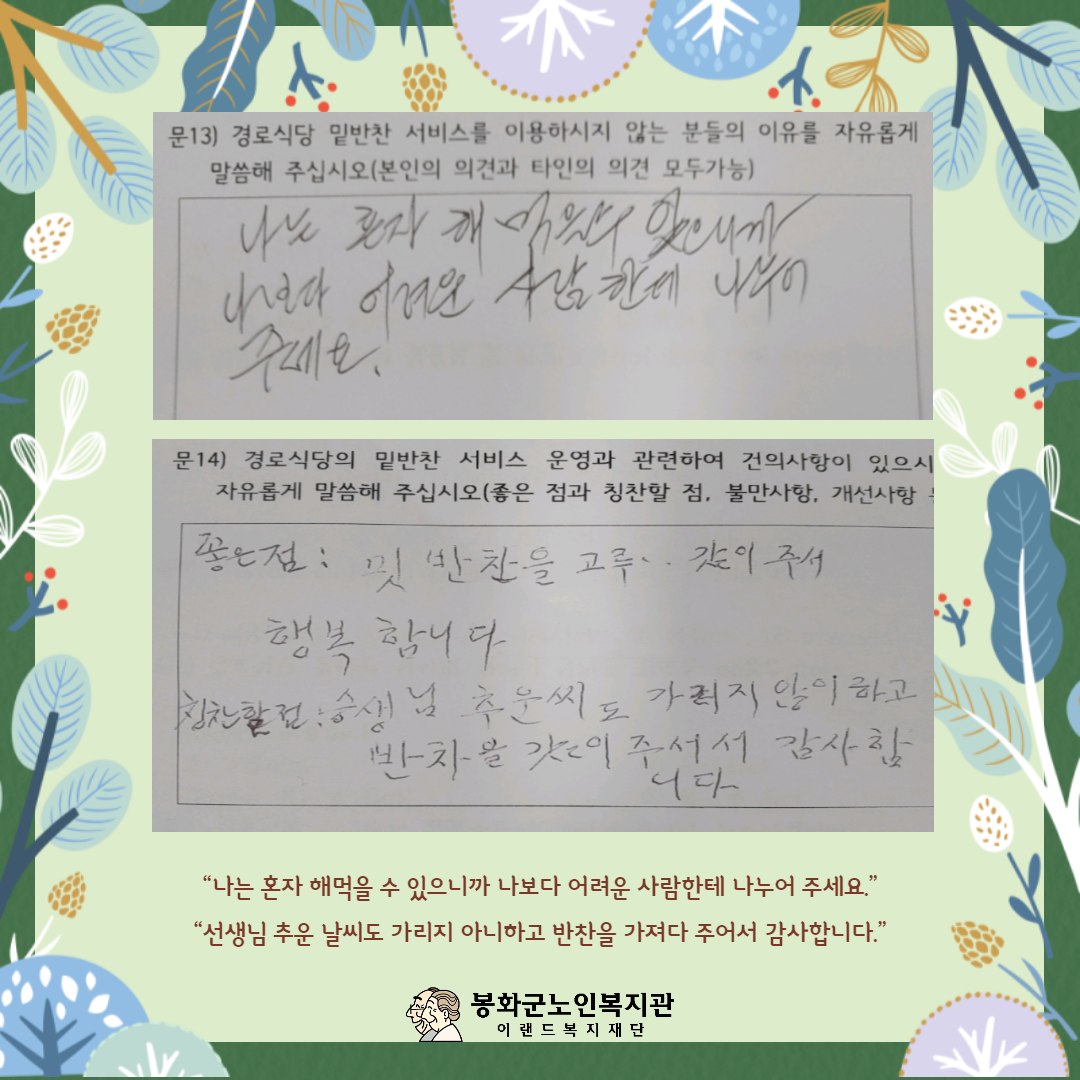 문13) 경로식당 밑반찬 서비스를 이용하시지 않는 분들의 이유를 자유롭게
말씀해 주십시오(본인의 의견과 타인의 의견 모두가능)
나는 혼자 해 먹을수 있으니까
나보다 어려운 사람한테 나누어
주세요.
문14) 경로식당의 밑반찬 서비스 운영과 관련하여 건의사항이 있으시
자유롭게 말씀해 주십시오(좋은 점과 칭찬할 점, 불만사항, 개선사항
좋은점: 밋 반찬을 고루·· 갓이 주서
행복 합니다
칭찬할점: 승생님 추운씨도 가리지 안이하고
반차을 갓이 주서서 감사합
니다
“나는 혼자 해먹을 수 있으니까 나보다 어려운 사람한테 나누어 주세요.”
“선생님 추운 날씨도 가리지 아니하고 반찬을 가져다 주어서 감사합니다.”
봉화군노인복지관
이랜드복지재단